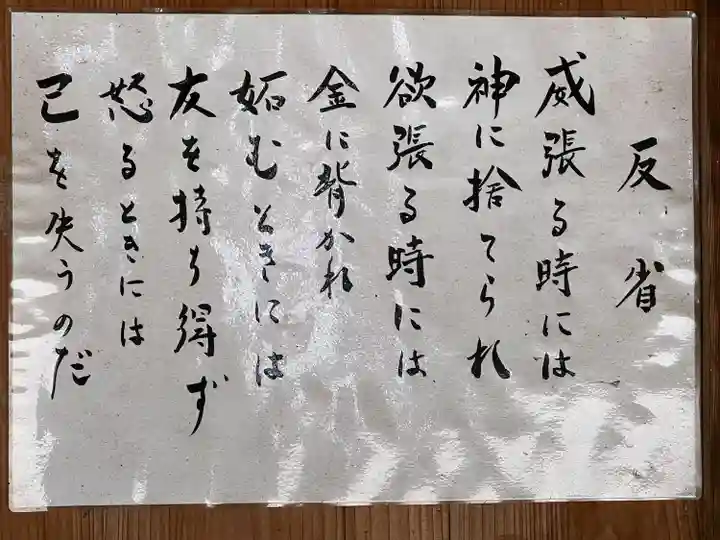 反省
威張る時には
神に捨てられ
欲張る時には
金に背かれ
妬むときには
友を持ち得ず
怒るときには
己を失うのだ